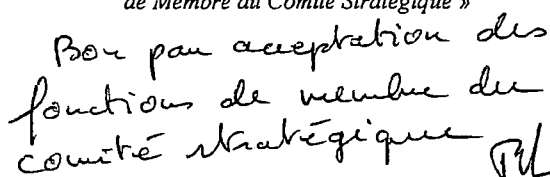 de Membre du Comité Stratégique »
Bon pour acceptation des
fonctions de membre du
comité stratégique